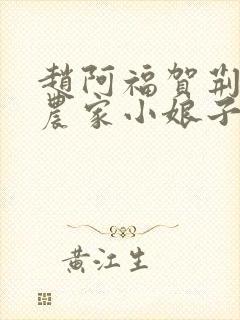 趙阿福賀荊
農家小娘子
黃江生